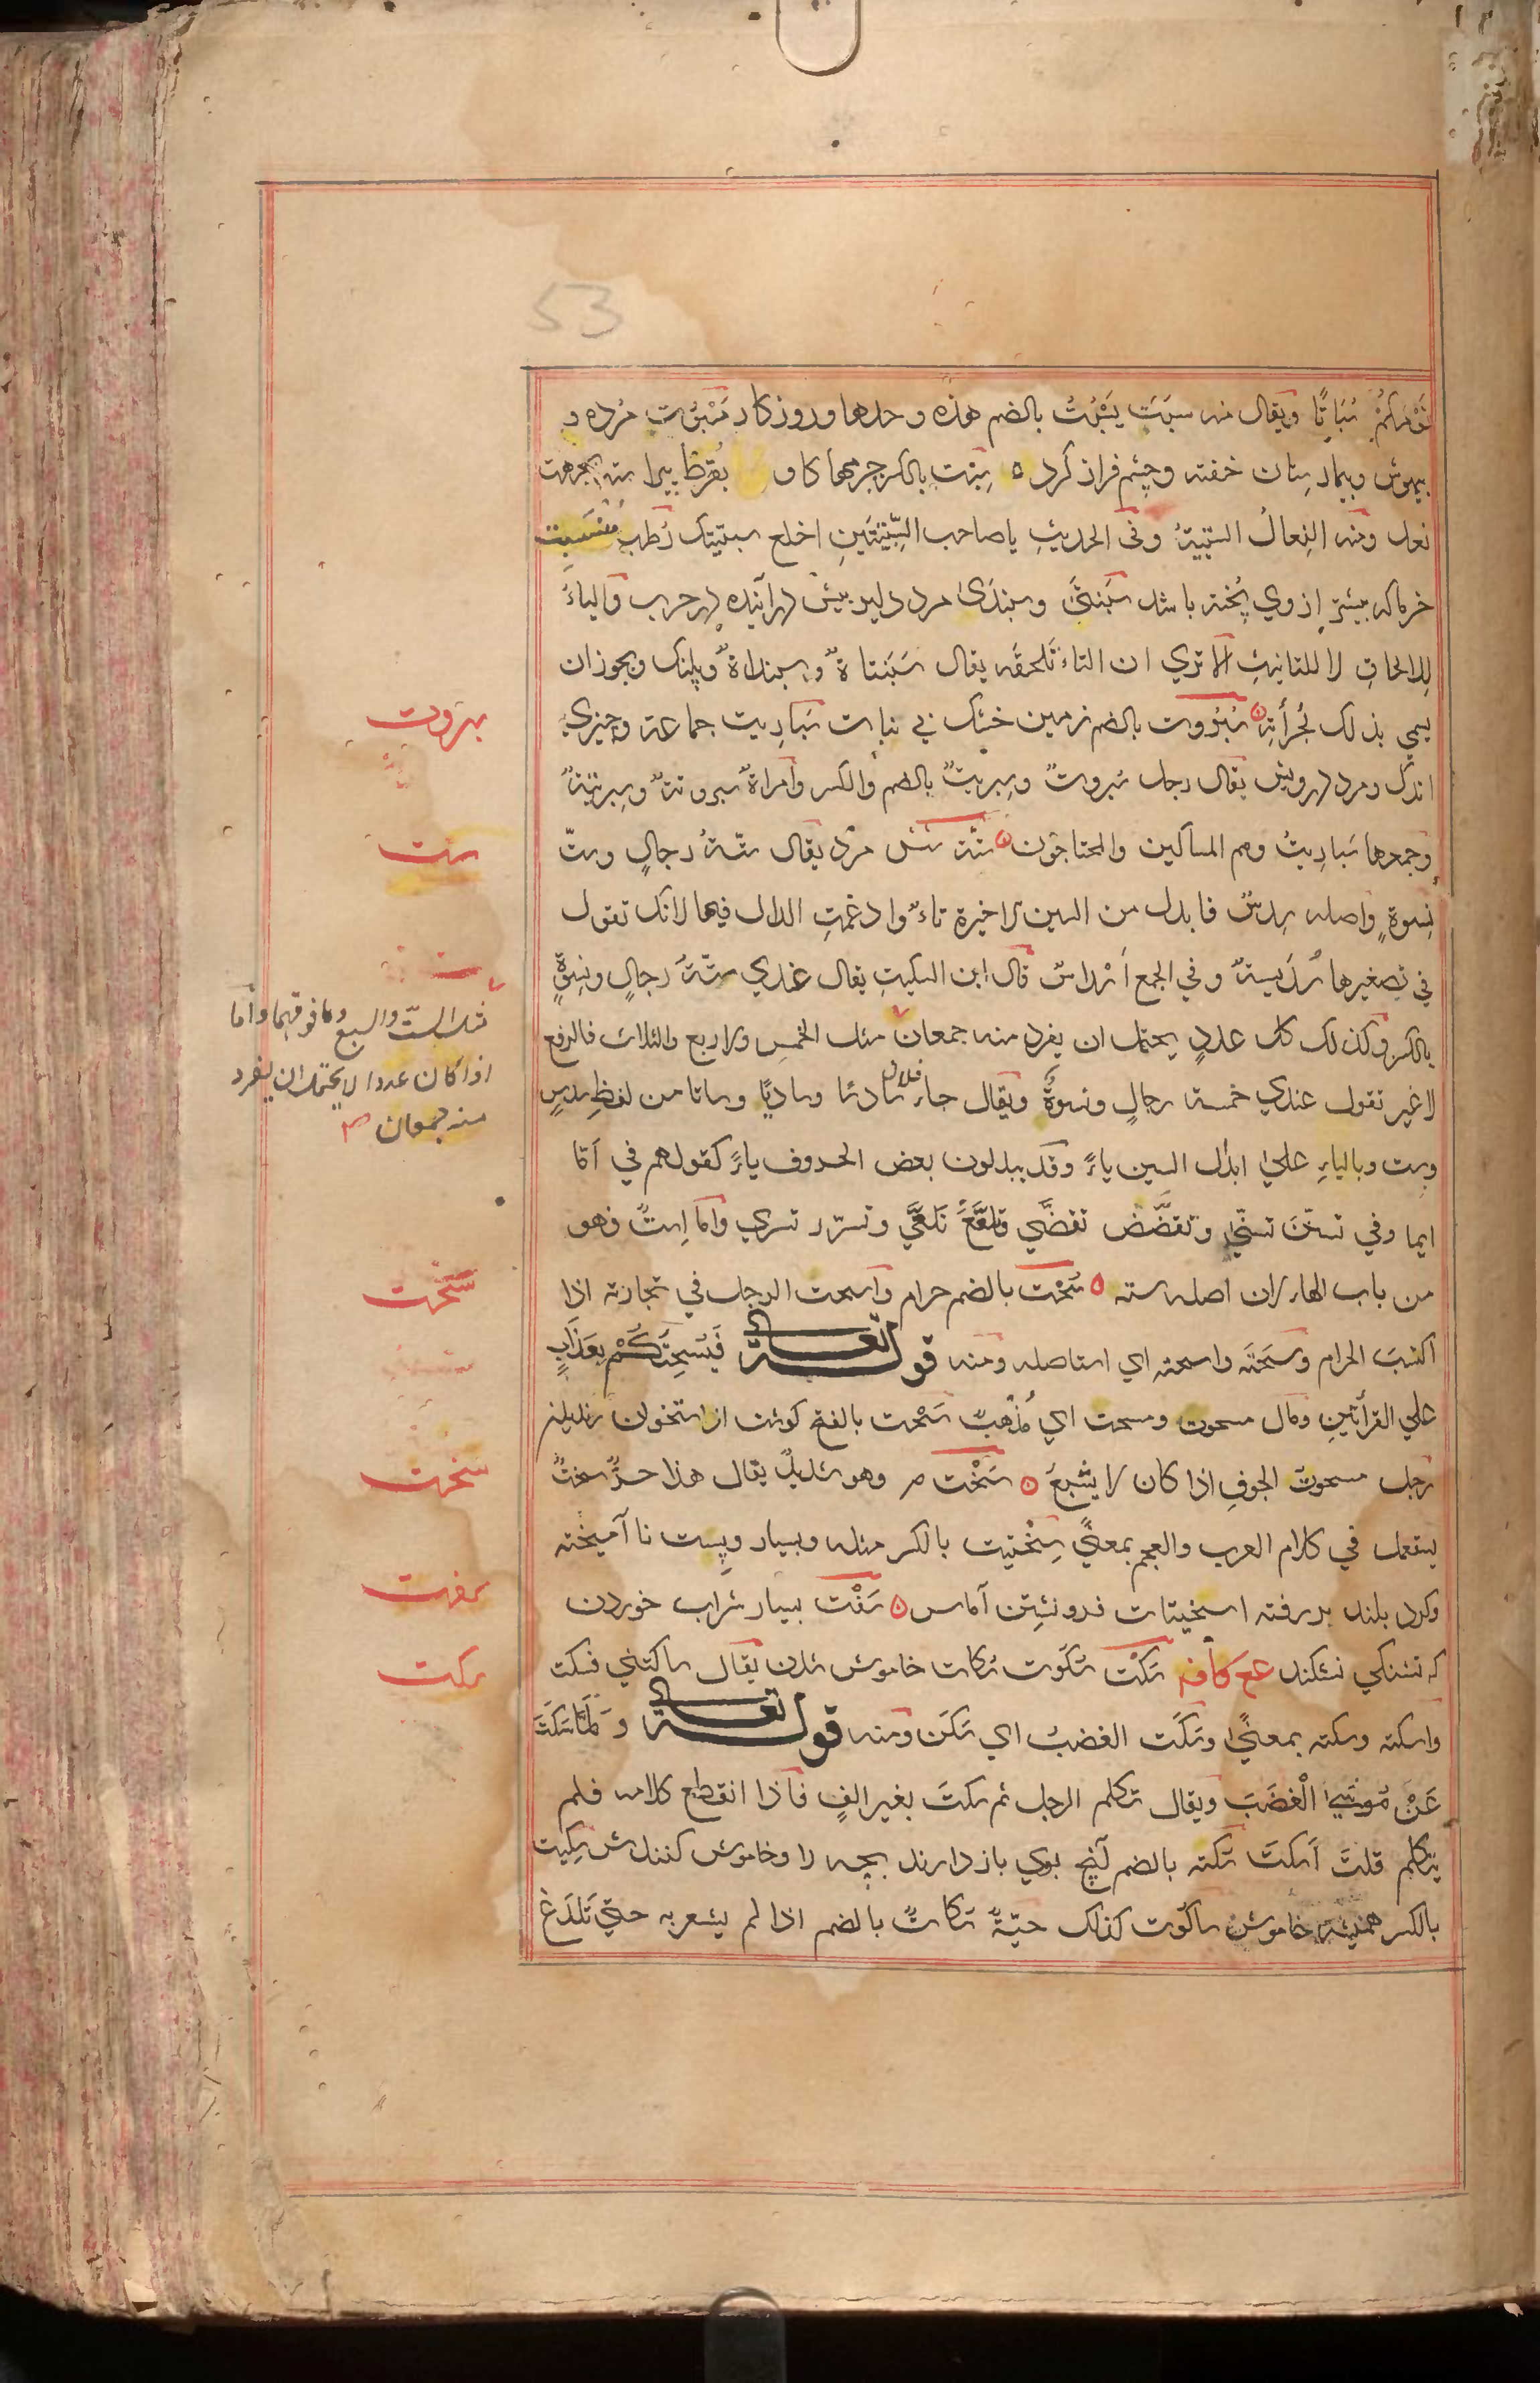 53
نَوْمَكُمْ سُبَاتًا ويقال منه سبَتَ يَسْبُتُ بالضم هذه وحدها وروزكار مَسْبُوت مُرده و
بيهوش وبيمارستان خفته وچشم فراز كرد سِبْت بالكسر جرمهاء كاو بقرظ پيراسته بجهت
نعل ومنه النِعالُ السّبتيةُ وفي الحديثِ ياصاحب السِّبْتَيَنِ اخلع سبتيتيك رُطب مُنسَبِت
خرما كه بيشتر ازوي پُخته باشد سَبَنتَى وسبندَى مرد دلير پيش درآينده در حرب والياءُ
لِلالحاقِ لا للتانيثِ الا تري ان التاءَ تَلحقَه يقال سَبَنتاةٌ وسبنداةٌ وپلنك ويجوز ان
يسمي بذلك لجُرأتِه سُبْرُوت بالضم زمين خشك بي نبات سَبَارِيت جماعة وچيزي
اندك ومرد درويش يقال رجل سُبروتٌ وسِبريتٌ بالضم والكسر وامراةٌ سبروتةٌ وسِبريتةٌ
وجمعها سَبارِيتُ وهم المساكين والمحتاجون سِتّة شش مرد يقال ستّةُ رجالٍ وستّ
نِسوةٍ واصله سِدسٌ فابدل من السين الاخيرة تاءٌ وادغمتِ الدال فيها لانك تقول
في تصغيرها سُدَيسةٌ وفي الجمع اَسْداسٌ قال ابن السكيتِ يقال عندي ستّةُ رجالٍ ونسوةٍ
بالكسر وكذلك كل عددٍ يحتمل ان يفرد منه جمعان مثل الخمسِ والاربع والثلاث فالرفع
لا غير تقول عندي خمسة رجالٍ ونسوةٌ ويقال جاء فلان سادسًا وساديًا وساتا من لفظِ سِدسٍ
وست وبالياءِ علي ابدال السين ياءً وقد يبدلون بعض الحروف ياءً كقولهم في اَمّا
ايما وفي تسنّنَ تسنّى وتقضَّض تقضَّي وتلعَّعَ تلعَّي وتسرّر تسري واما اِستٌ فهو
من باب الهاء لان اصله سته سُحْت بالضم حرام واسحت الرجل في تجارته اذا
اكتسبَ الحرام وسَحَتَه واسحته اي استاصله ومنه قوله تعالى فَيُسْحِتَكُمْ بِعَذَابٍ
علي القرأتين ومال مسحوت ومسحت اي مُذْهبٌ سَحْت بالفتح كوشت از استخوان رنديدن
رجل مسحوتُ الجوفِ اذا كان لا يشبعُ سَخْت م وهو شديدٌ يقال هذا حرٌّ سختٌ
يستعمل في كلام العرب والعجم بمعنًي سِخْتيت بالكسر مثله وبسيار وپِست نا آميخته
وكرد بلند بر رفته اسخيتات فرونشِتن آماس سَفْت بسيار شراب خوردن
كه تشنكي نشكند عع كافه سَكْت سُكوت سُكات خاموش شدن يقال ساكتني فسكت
واسكته وسكته بمعنًي وسَكَت الغضبُ اي سَكَن ومنه قوله تعالى وَلَمَّا سَكَتَ
عَنْ مُوسَى الْغَضَبَ ويقال تكلم الرجل ثم سكتَ بغير الفٍ فاذا انقطع كلامه فلم
يتكلم قلتَ اَسكتَ سُكته بالضم آنچ بوي باز دارند بچه را وخاموش كنندش سِكِّيت
بالكسر هميشه خاموش ساكُوت كذلك حيّةٌ سُكاتٌ بالضم اذا لم يشعر به حتي تَلدَغ
سبروت
ست
مثل الستّ والسبع وما فوقهما واما
اذا كان عددا لا يحتمل ان يفرد
منه جمعان
سَحُت
سخت
سفت
سكت